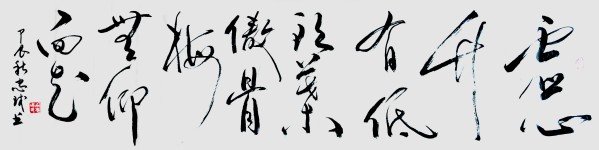 虚心
竹
有低
头葉
傲骨
梅
無仰
面花
甲辰秋